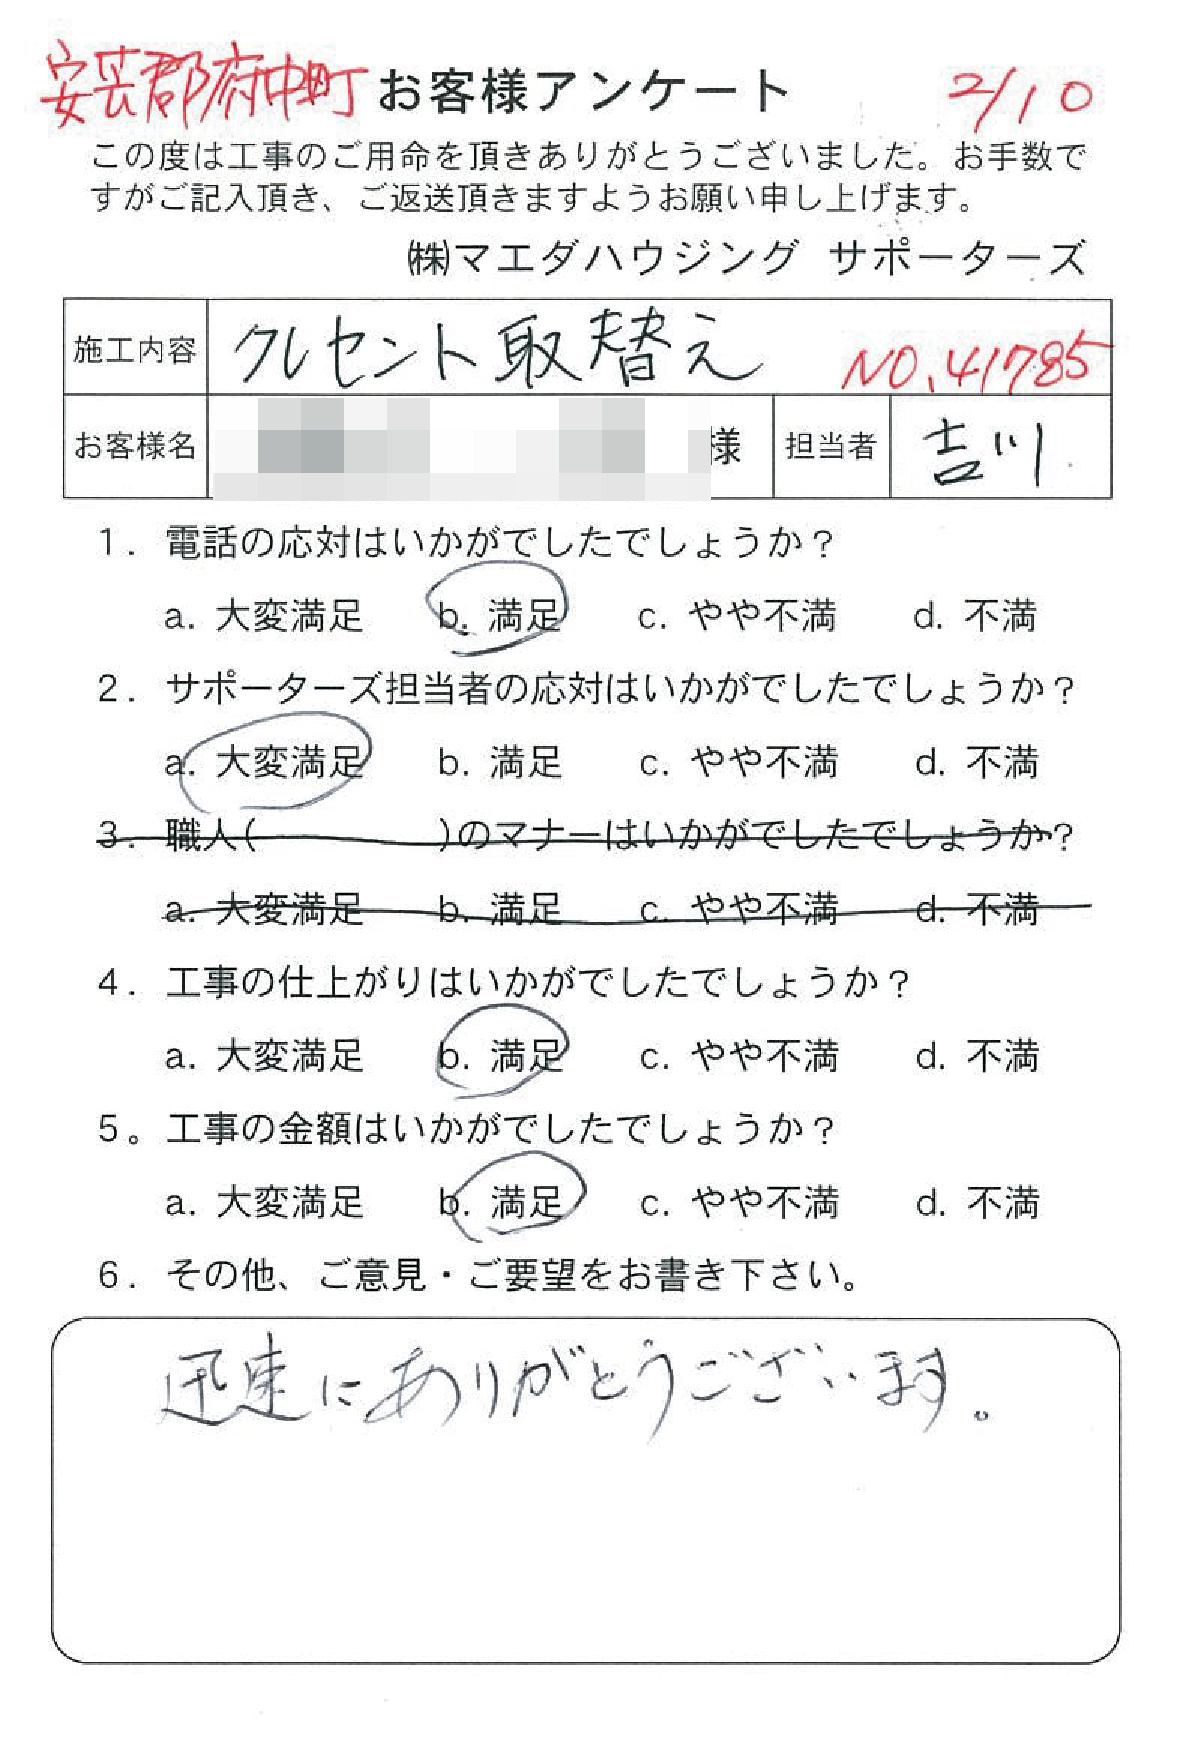 安芸郡府中町 お客様アンケート 2/10
この度は工事のご用命を頂きありがとうございました。お手数で
すがご記入頂き、ご返送頂きますようお願い申し上げます。
㈱マエダハウジング サポーターズ
施工内容 クレセント取替え NO.41785
お客様名 様 担当者 吉川
1. 電話の応対はいかがでしたでしょうか？
a. 大変満足 b. 満足 c. やや不満 d. 不満
2. サポーターズ担当者の応対はいかがでしたでしょうか？
a. 大変満足 b. 満足 c. やや不満 d. 不満
3. 職人( )のマナーはいかがでしたでしょうか？
a. 大変満足 b. 満足 c. やや不満 d. 不満
4. 工事の仕上がりはいかがでしたでしょうか？
a. 大変満足 b. 満足 c. やや不満 d. 不満
5。工事の金額はいかがでしたでしょうか？
a. 大変満足 b. 満足 c. やや不満 d. 不満
6. その他、ご意見・ご要望をお書き下さい。
迅速にありがとうございます。